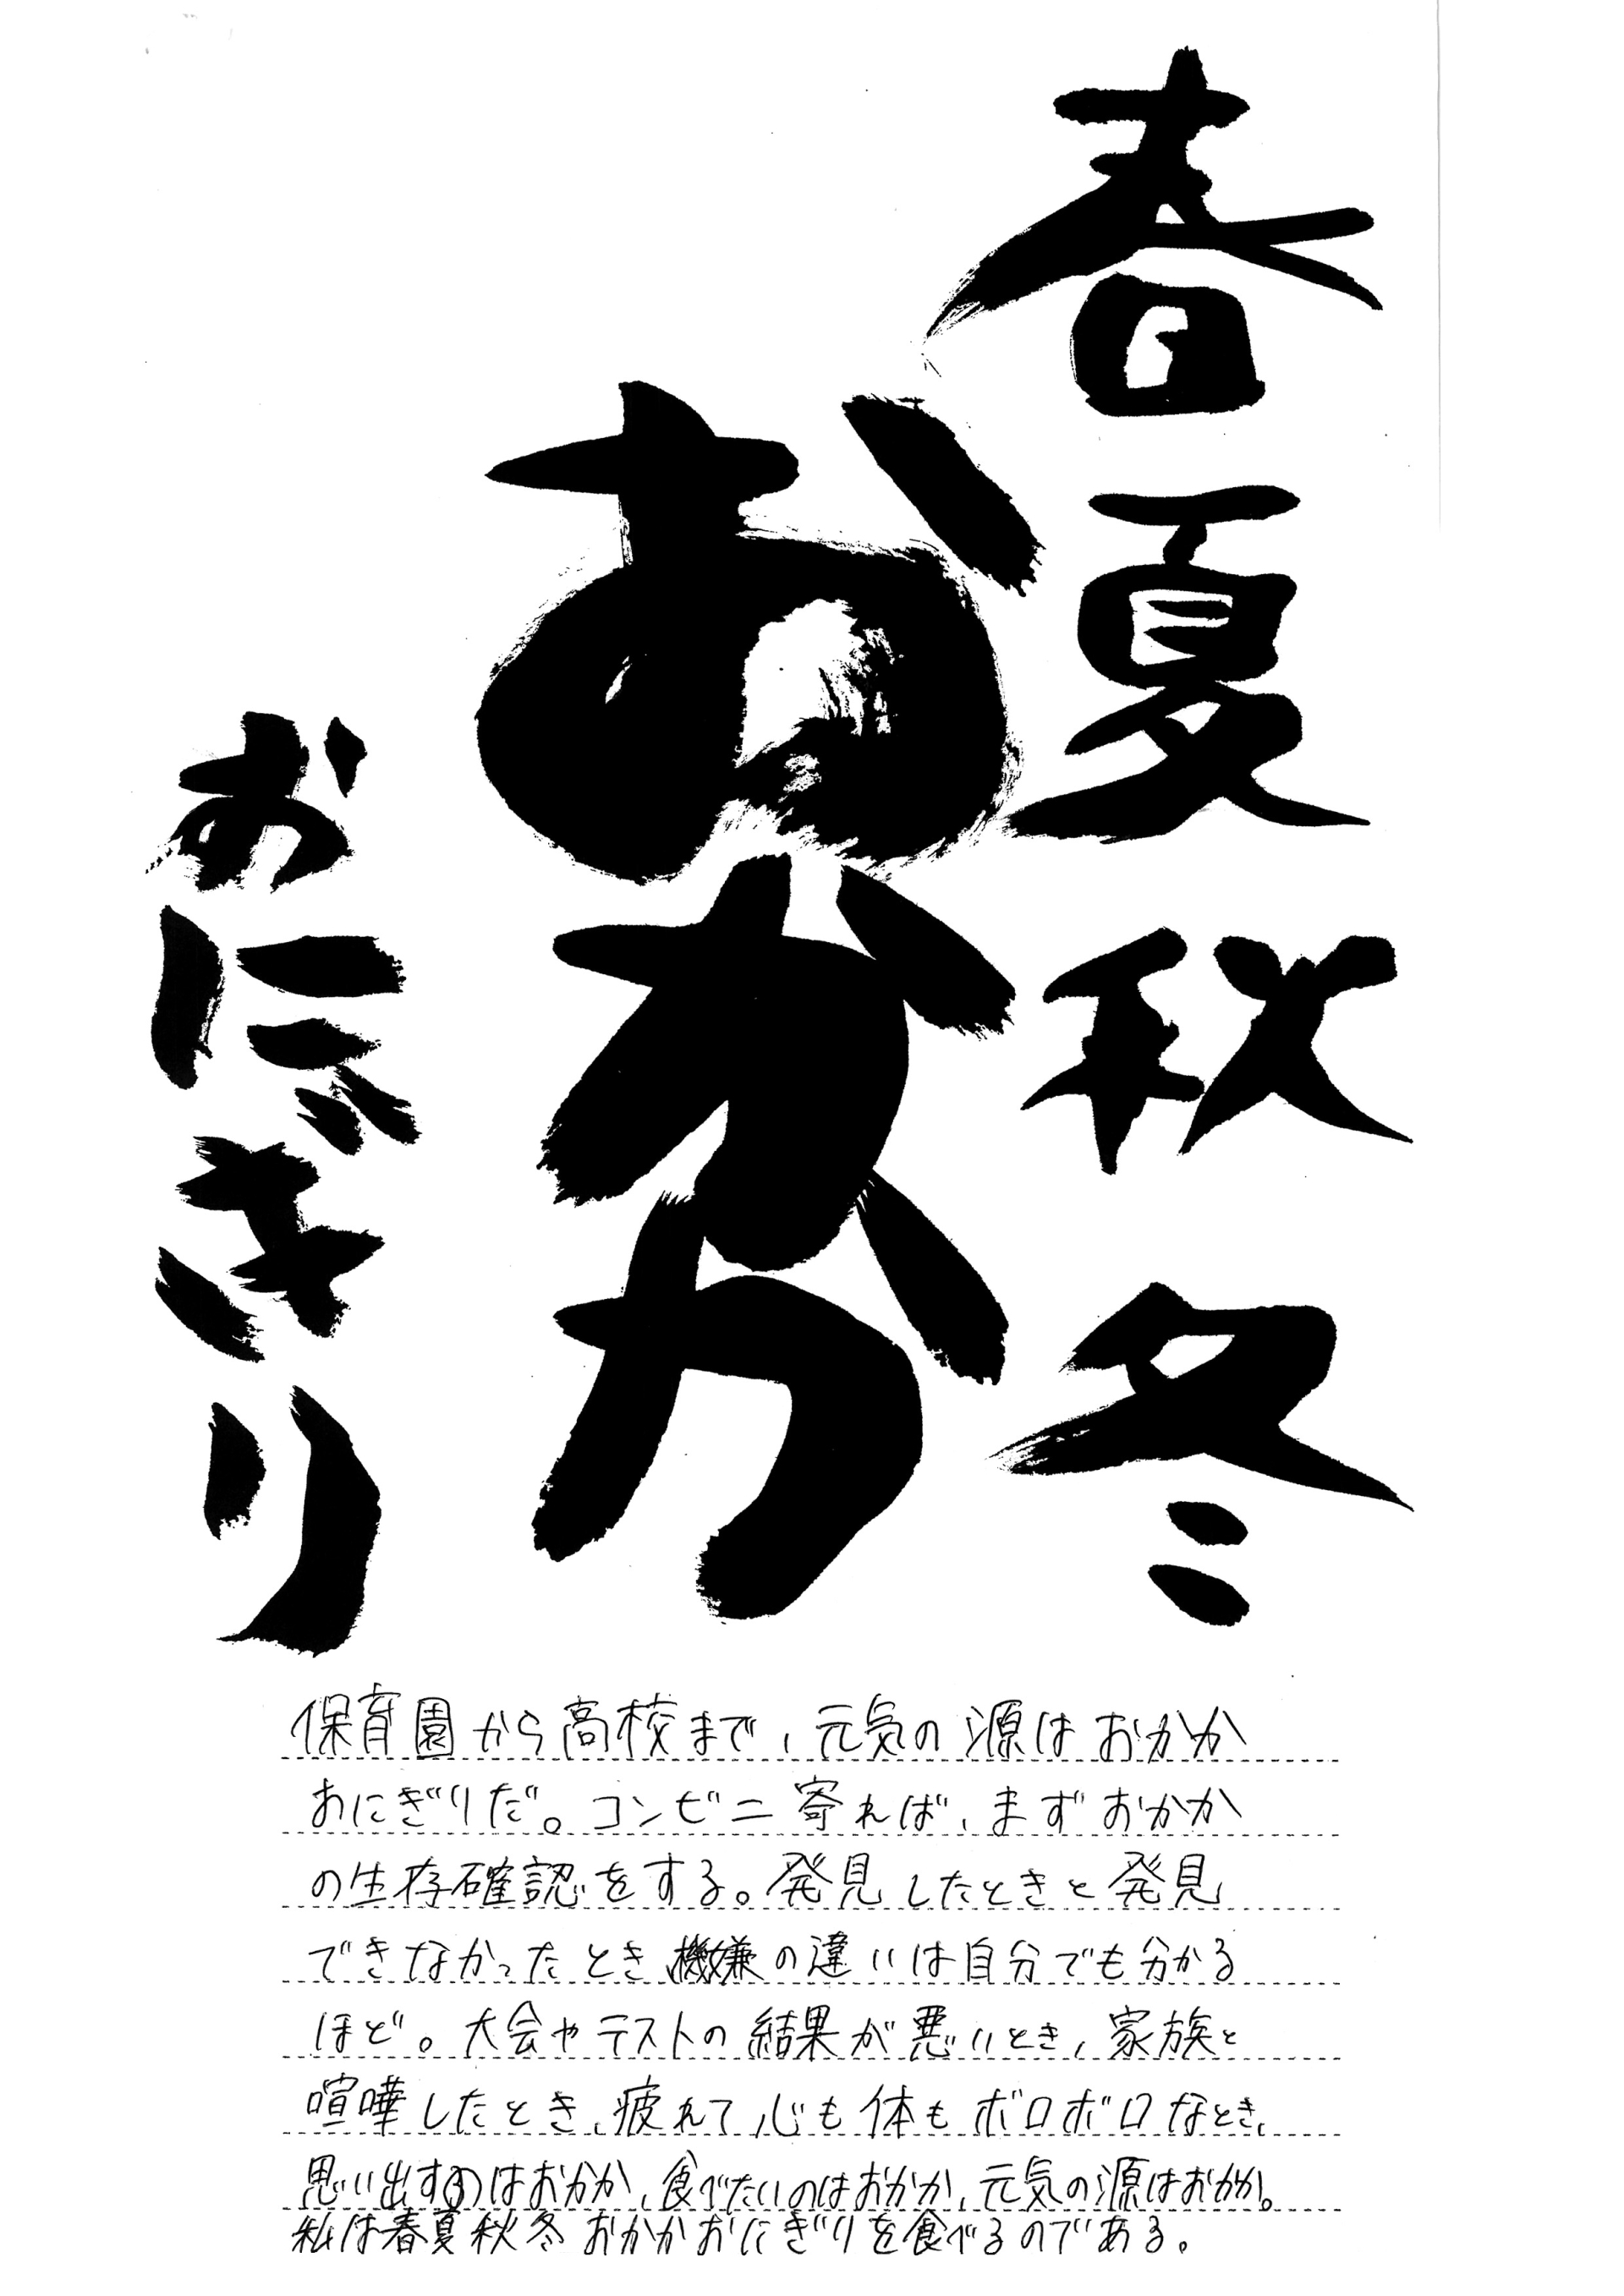 春夏秋冬
おかか
おにぎり
保育園から高校まで、元気の源はおかか
おにぎりだ。コンビニ寄れば、まずおかか
の生存確認をする。発見したときと発見
できなかったとき機嫌の違いは自分でも分かる
ほど。大会やテストの結果が悪いとき、家族と
喧嘩したとき、疲れて心も体もボロボロなとき、
思い出すのはおかか、食べたいのはおかか、元気の源はおかか。
私は春夏秋冬おかかおにぎりを食べるのである。